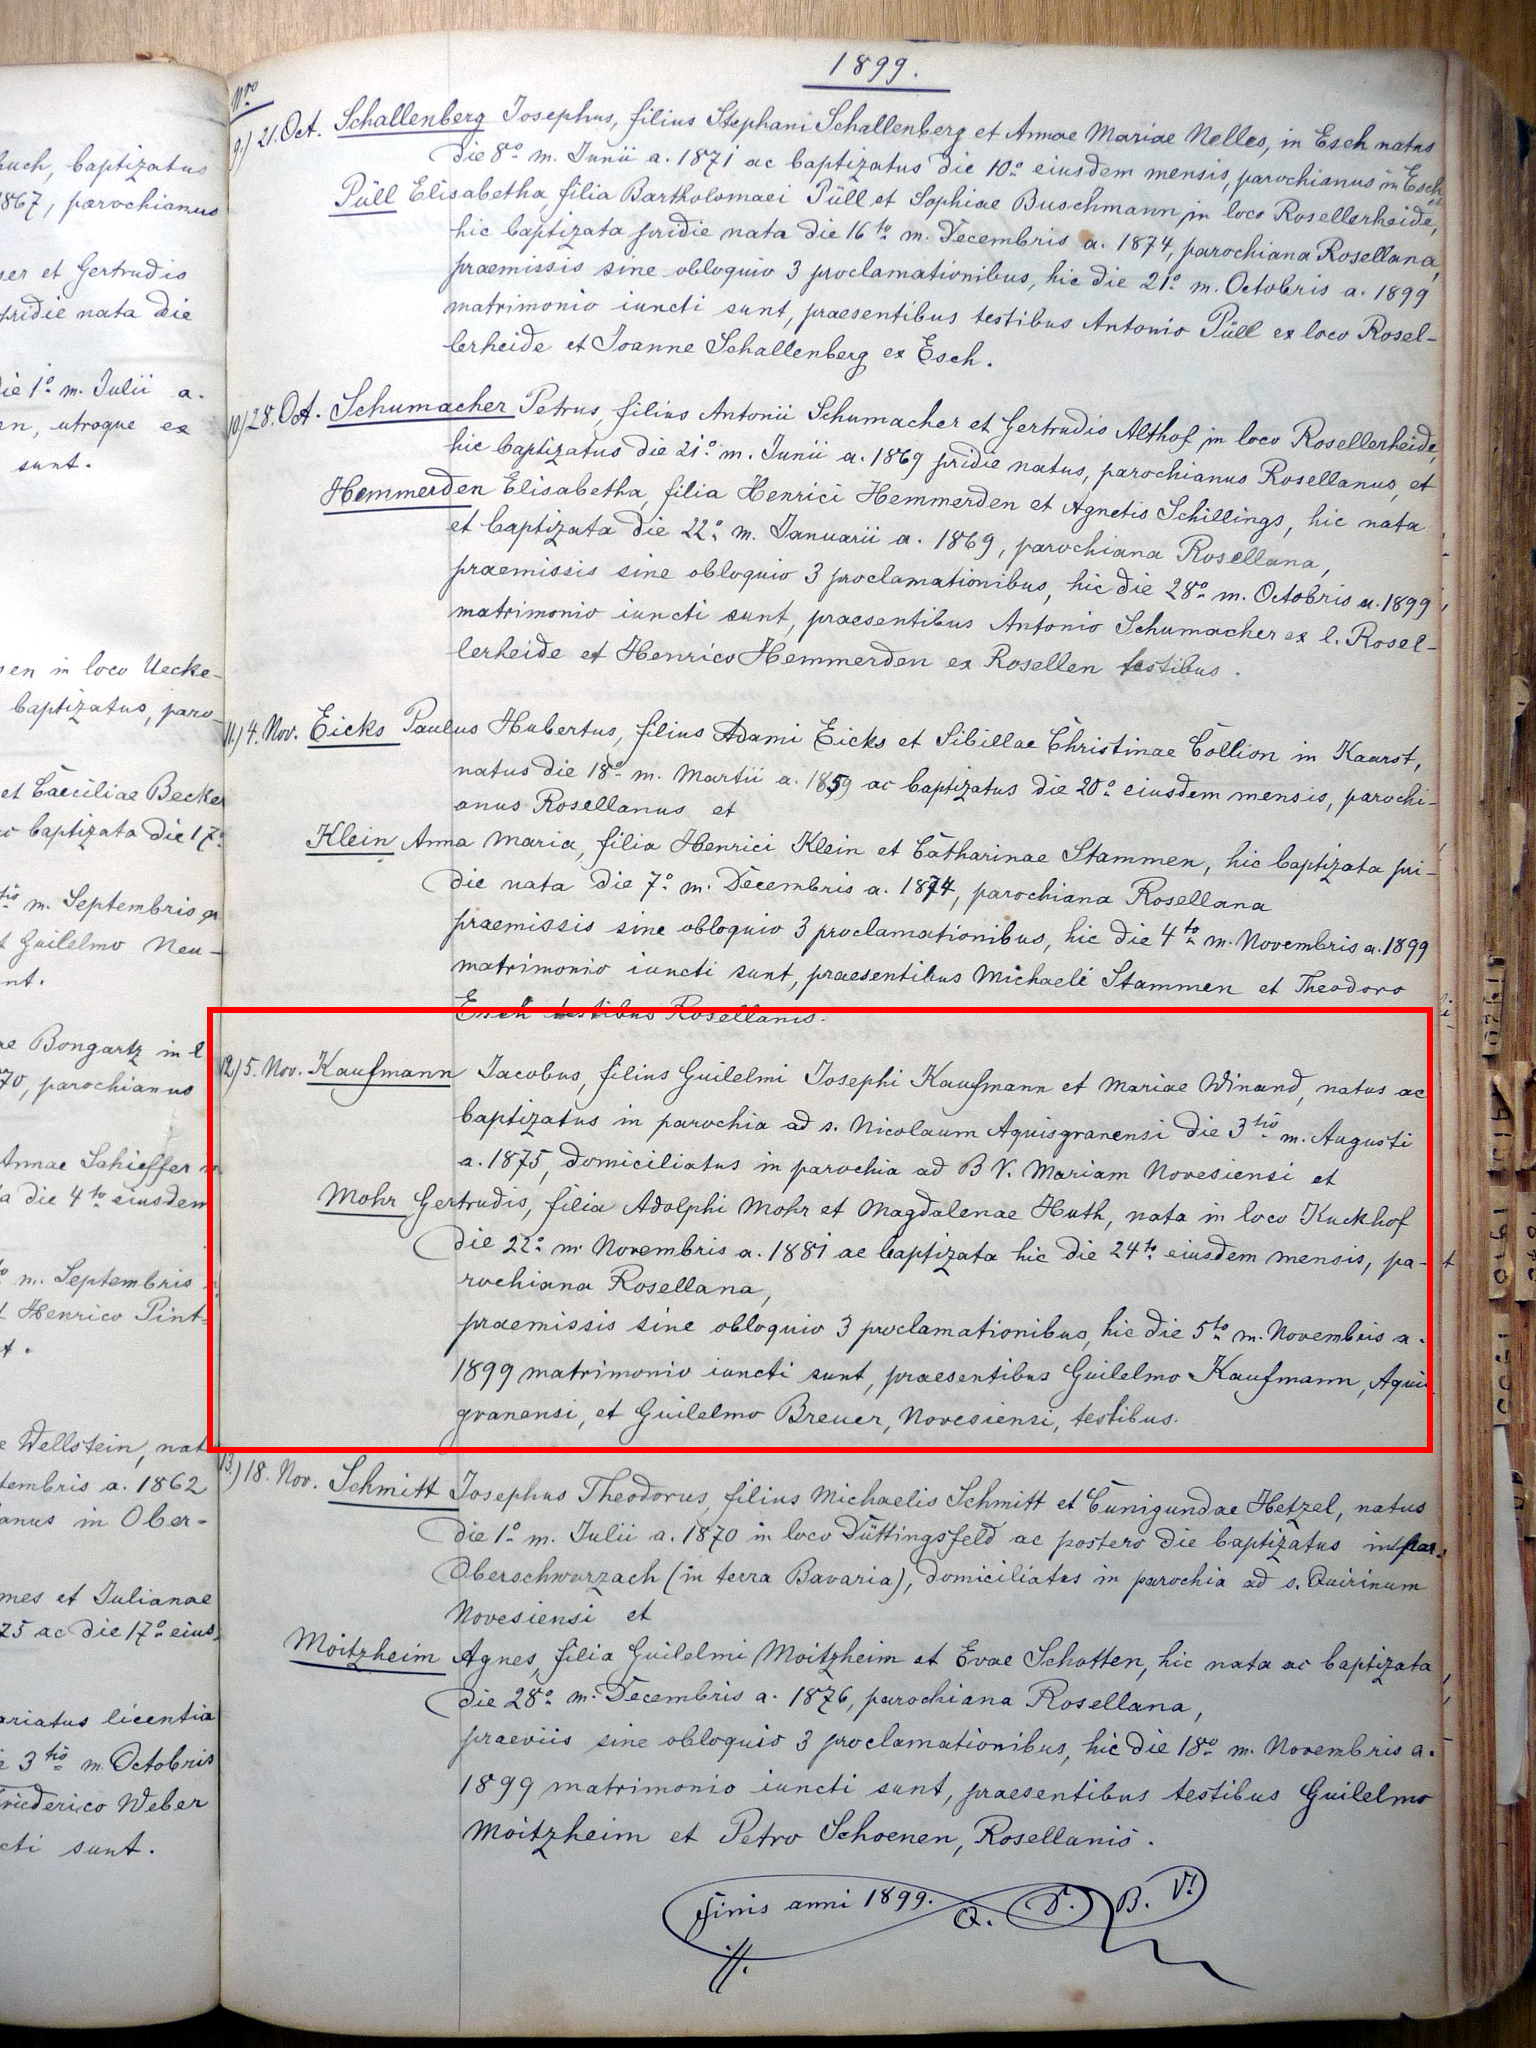 1899.
Nro
9.) 21. Oct. Schallenberg Josephus, filius Stephani Schallenberg et Annae Mariae Nelles, in Esch natus
die 8o m. Junii a. 1871 ac baptizatus die 10o eiusdem mensis, parochianus in Esch et
Püll Elisabetha filia Bartholomaei Püll et Sophiae Buschmann in loco Rosellerheide,
hic baptizata pridie nata die 16to m. Decembris a. 1874, parochiana Rosellana,
praemissis sine obloquio 3 proclamationibus, hic die 21o m. Octobris a. 1899
matrimonio iuncti sunt, praesentibus testibus Antonio Püll ex loco Rosel-
lerheide et Joanne Schallenberg ex Esch.
10.) 28. Oct. Schumacher Petrus, filius Antonii Schumacher et Gertrudis Althof, in loco Rosellerheide,
hic baptizatus die 21o m. Junii a. 1869 pridie natus, parochianus Rosellanus, et
Hemmerden Elisabetha, filia Henrici Hemmerden et Agnetis Schillings, hic nata
et baptizata die 22o m. Januarii a. 1869, parochiana Rosellana,
praemissis sine obloquio 3 proclamationibus, hic die 28o m. Octobris a. 1899
matrimonio iuncti sunt, praesentibus Antonio Schumacher ex l. Rosel-
lerheide et Henrico Hemmerden ex Rosellen testibus.
11.) 4. Nov. Eicks Paulus Hubertus, filius Adami Eicks et Sibillae Christinae Collion in Kaarst,
natus die 18o m. Martii a. 1859 ac baptizatus die 20o eiusdem mensis, parochi-
anus Rosellanus et
Klein Anna Maria, filia Henrici Klein et Catharinae Stammen, hic baptizata pri-
die nata die 7o m. Decembris a. 1874, parochiana Rosellana
praemissis sine obloquio 3 proclamationibus, hic die 4to m. Novembris a. 1899
matrimonio iuncti sunt, praesentibus Michaele Stammen et Theodoro
Esch testibus Rosellanis.
12.) 5. Nov. Kaufmann Jacobus, filius Guilelmi Josephi Kaufmann et Mariae Winand, natus ac
baptizatus in parochia ad s. Nicolaum Aquisgranensi die 3tio m. Augusti
a. 1875, domiciliatus in parochia ad B. V. Mariam Novesiensi et
Mohr Gertrudis, filia Adolphi Mohr et Magdalenae Huth, nata in loco Kuckhof
die 22o m. Novembris a. 1881 ac baptizata hic die 24to eiusdem mensis, pa-
rochiana Rosellana,
praemissis sine obloquio 3 proclamationibus, hic die 5to m. Novembris a.
1899 matrimonio iuncti sunt, praesentibus Guilelmo Kaufmann, Aquis
granensi, et Guilelmo Breuer, Novesiensi, testibus.
13.) 18. Nov. Schmitt Josephus Theodorus, filius Michaelis Schmitt et Cunigundae Hetzel, natus
die 1o m. Julii a. 1870 in loco Düttingsfeld ac postero die baptizatus in par.
Oberschwarzach (in terra Bavaria), domiciliatus in parochia ad s. Quirinum
Novesiensi et
Moitzheim Agnes, filia Guilelmi Moitzheim et Evae Schotten, hic nata ac baptizata
die 28o m. Decembris a. 1876, parochiana Rosellana,
praeviis sine obloquio 3 proclamationibus, hic die 18o m. Novembris a.
1899 matrimonio iuncti sunt, praesentibus testibus Guilelmo
Moitzheim et Petro Schoenen, Rosellanis.
Finis anni 1899. Q. D. B. V.!